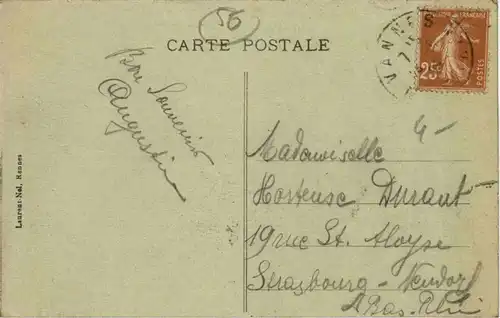 56
CARTE POSTALE
VANNES
25c
POSTES
Bon Souvenir
Augustin
4-
Mademoiselle
Hortense Durant
19 rue St. Aloyse
Strasbourg - Neudorf
Bas-Rhin
Laurent-Nel, Rennes